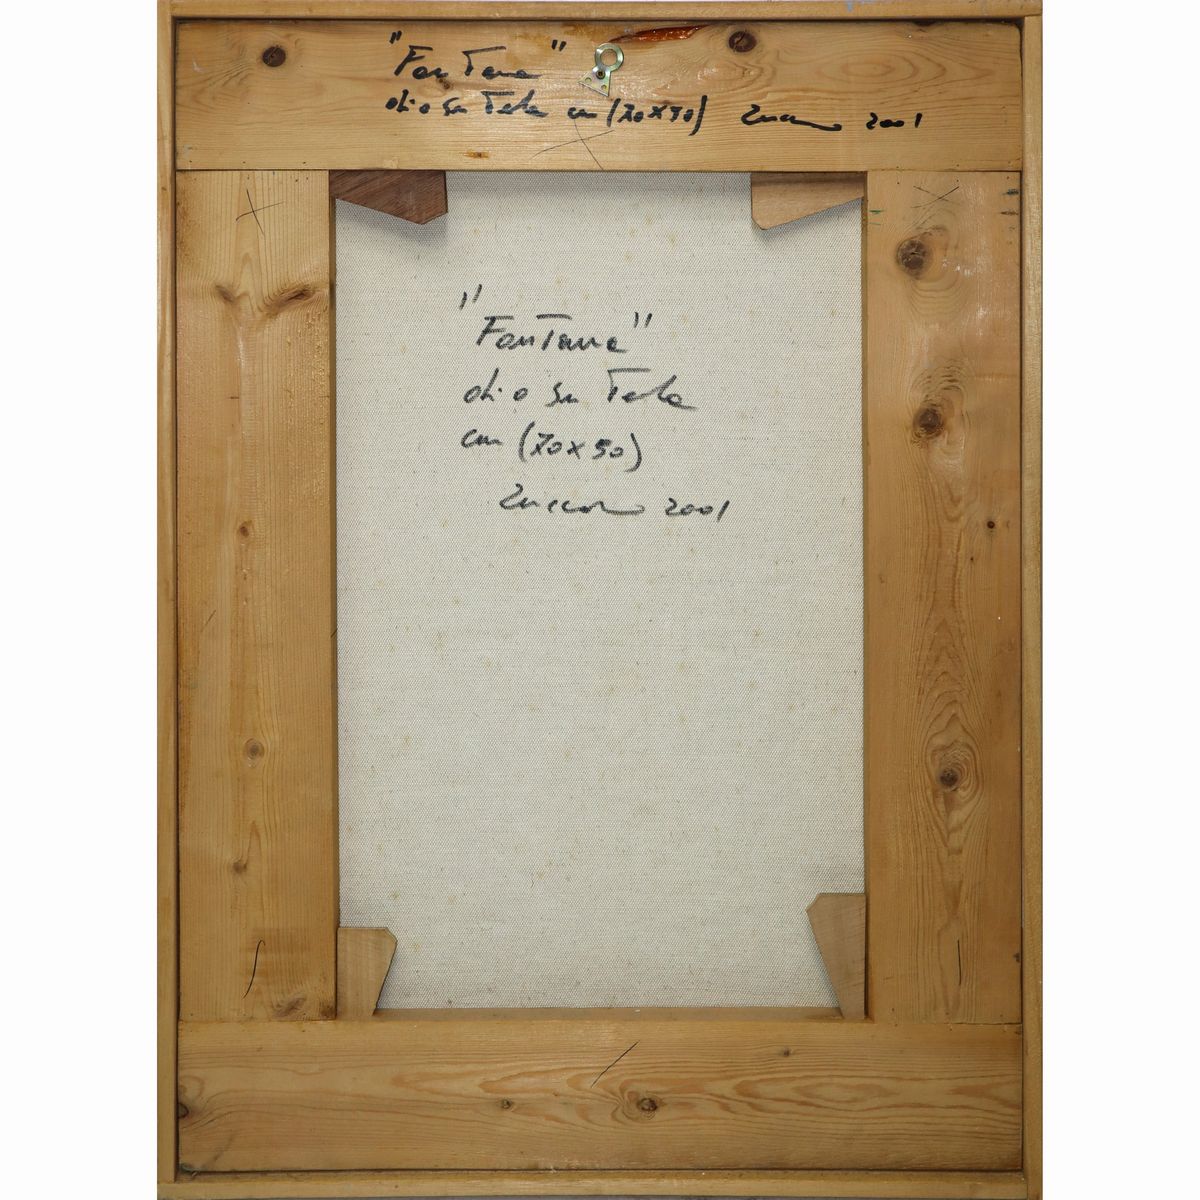 "Fontana"
olio su Tela cm (70x50) 2001
"Fontana"
olio su Tela
cm (70x50)
2001